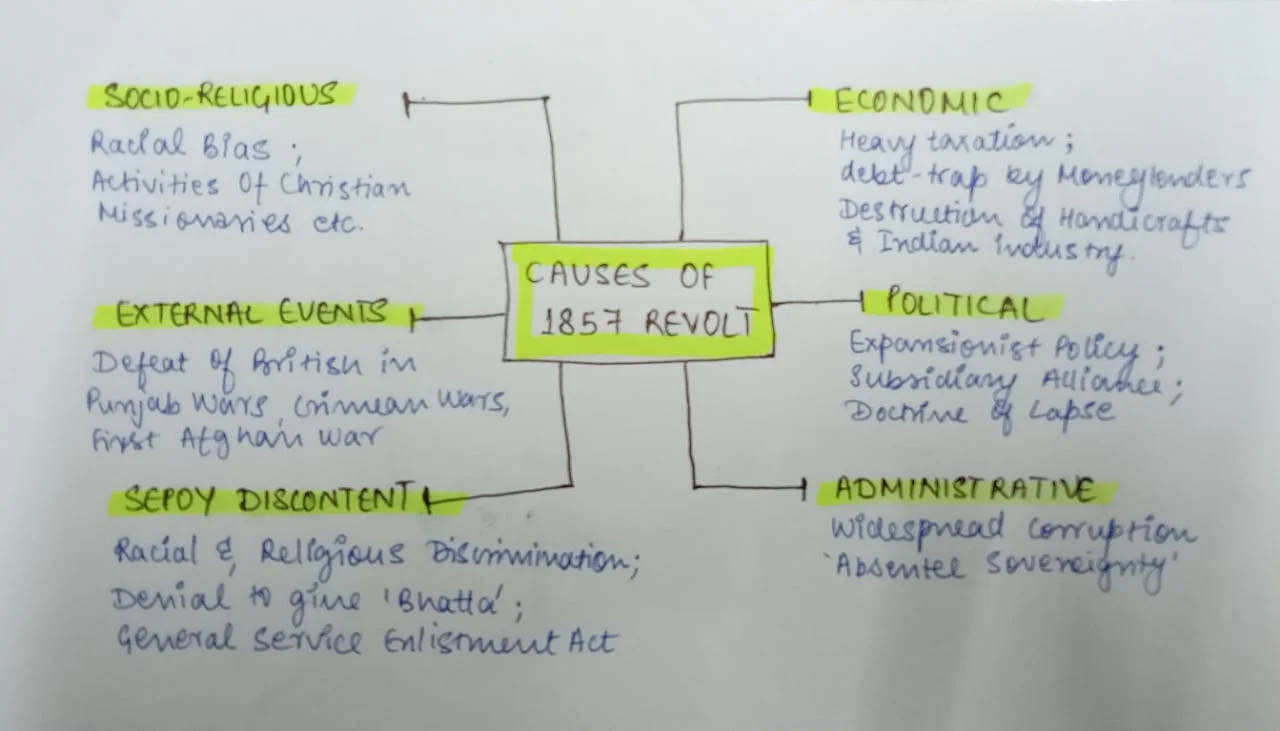 CAUSES OF
1857 REVOLT
SOCIO-RELIGIOUS
Racial Bias ;
Activities Of Christian
Missionaries etc.
EXTERNAL EVENTS
Defeat of British in
Punjab Wars, Crimean Wars,
First Afghan War
SEPOY DISCONTENT
Racial & Religious Discrimination;
Denial to give 'Bhatta';
General Service Enlistment Act
ECONOMIC
Heavy taxation ;
debt-trap by Moneylenders
Destruction of Handicrafts
& Indian Industry.
POLITICAL
Expansionist Policy ;
Subsidiary Alliance ;
Doctrine of Lapse
ADMINISTRATIVE
Widespread Corruption
'Absentee Sovereignty'